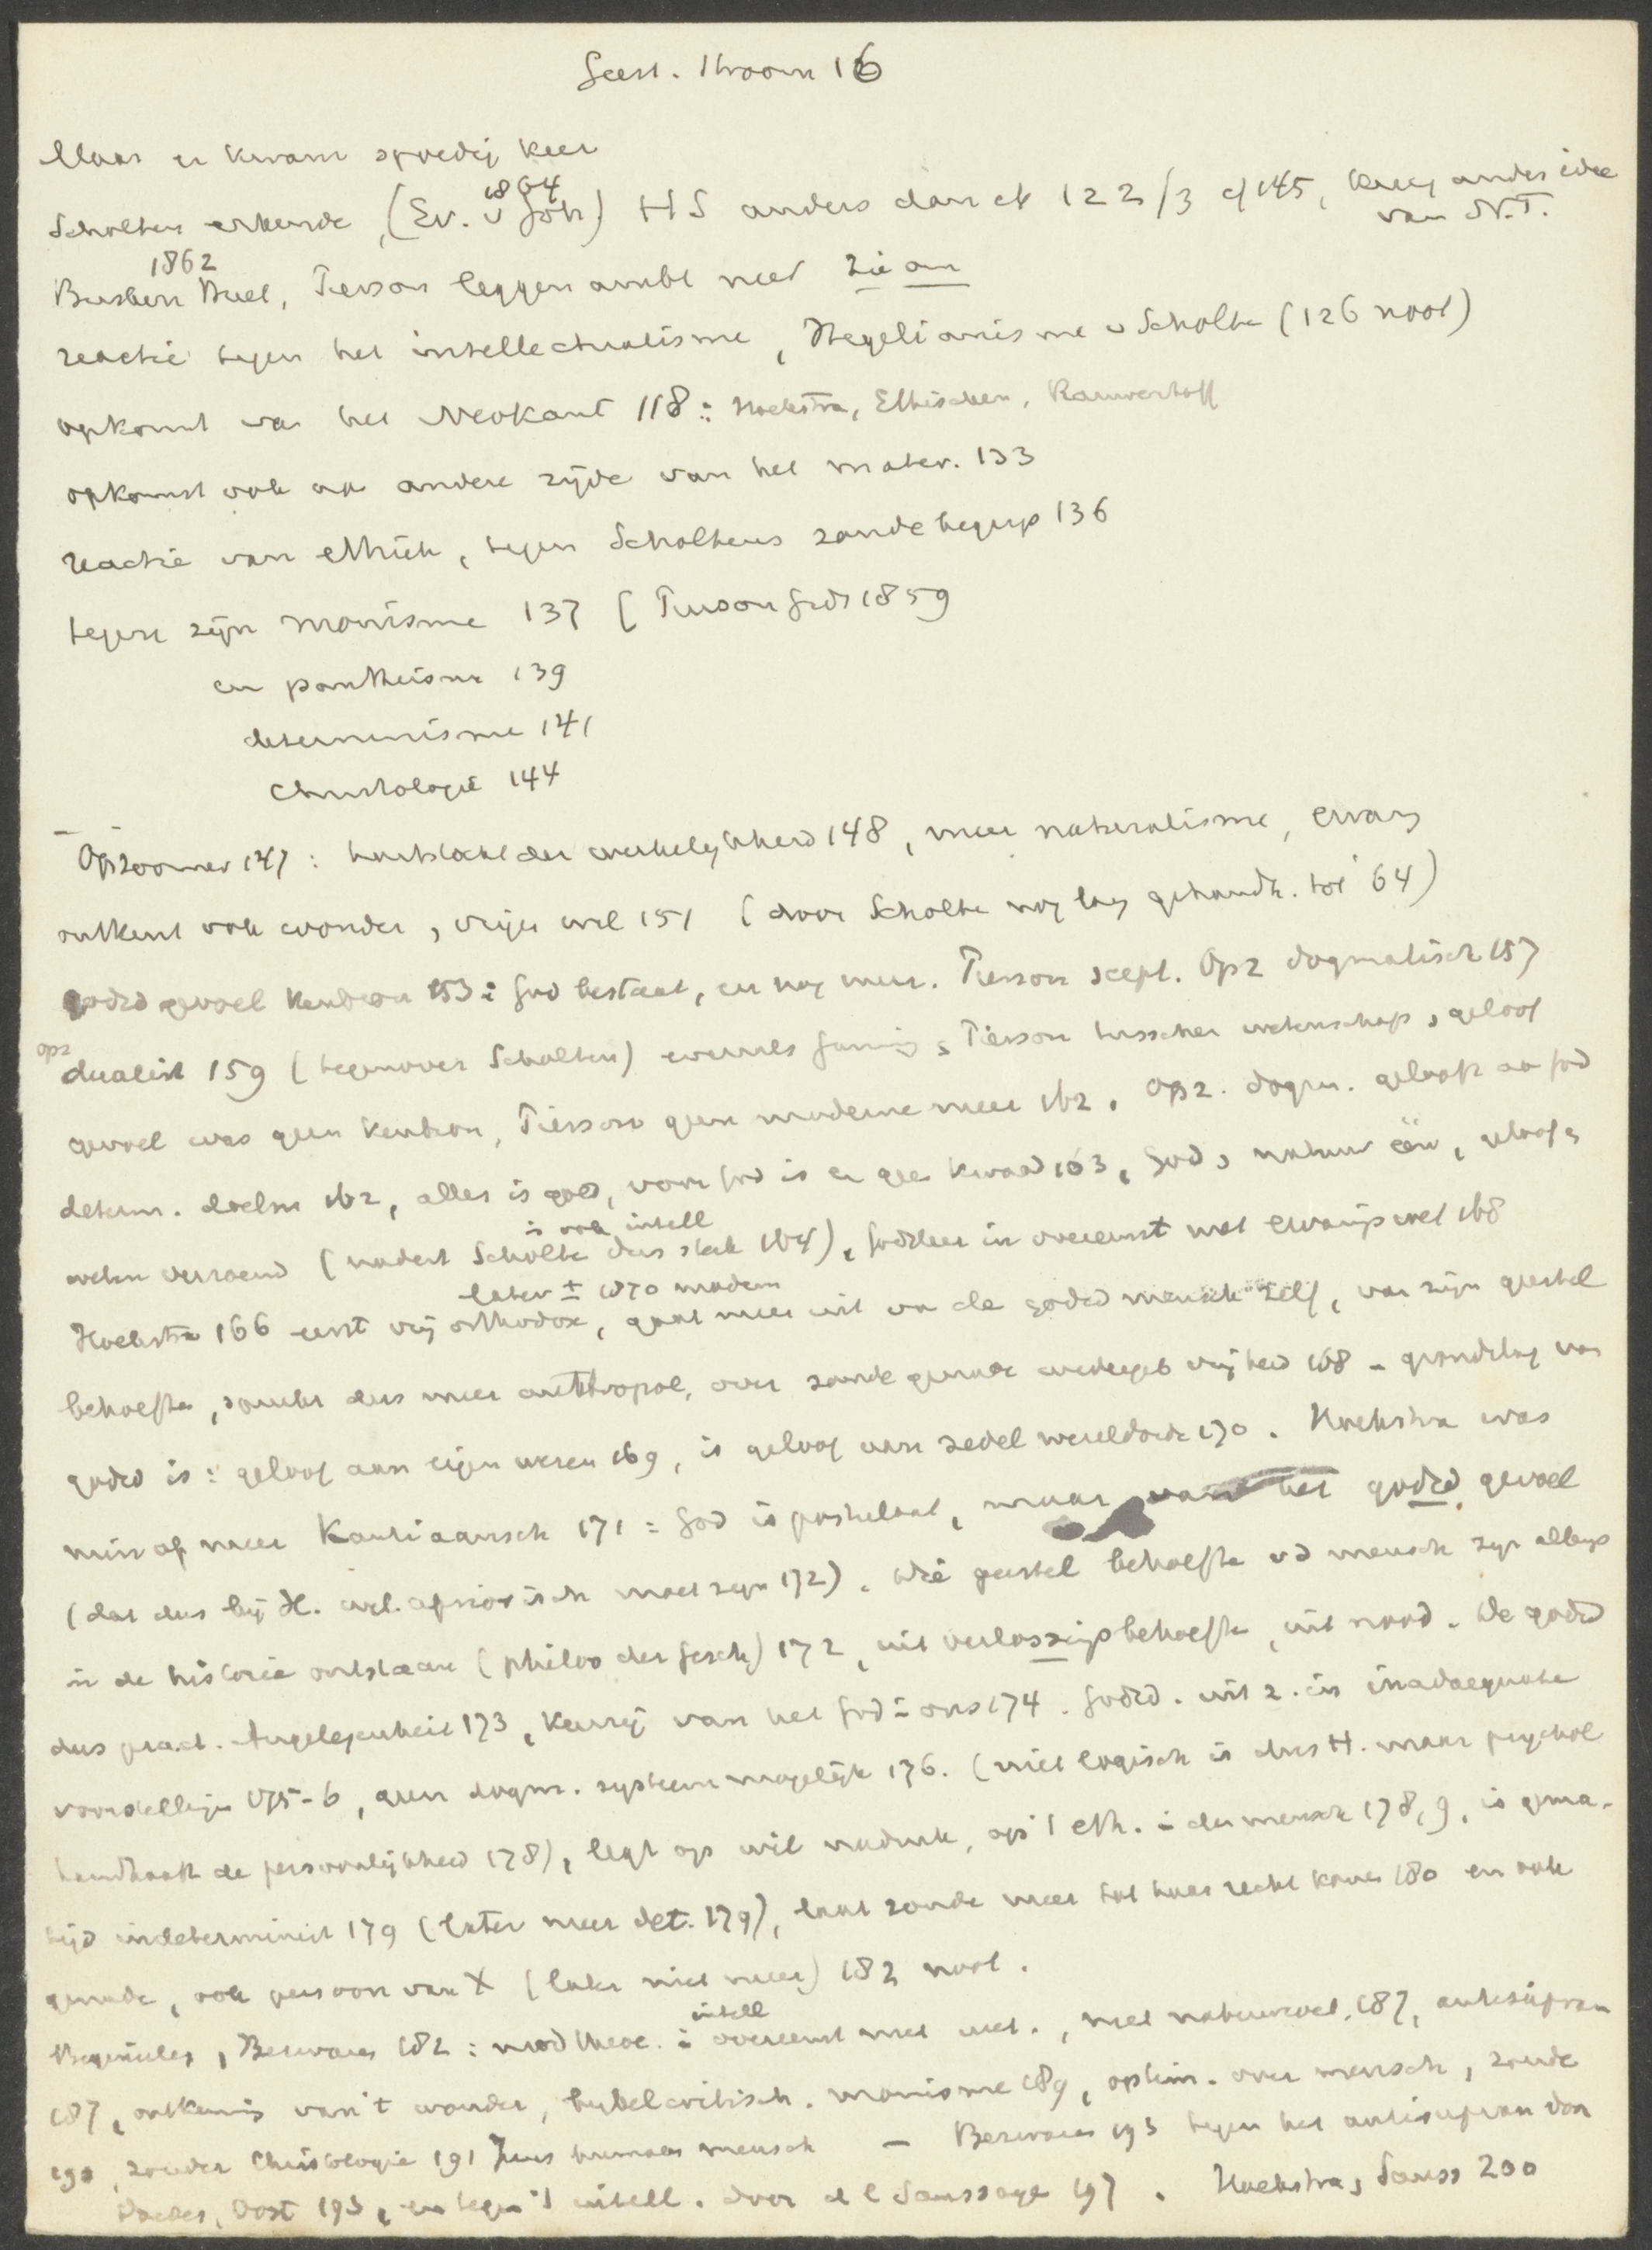 Geest. stroom 16
Maar er kwam spoedig keer
Scholten erkende, (Ev. v Joh) 1864 HS anders dan ik 122/3 cf 145, kreeg ander idee van N.T.
Busken Huet, 1862 Pierson leggen ambt neer
reactie tegen het intellectualisme, Hegelianisme v Scholte (126 noot)
opkomst van het Neokant 118: Hoekstra, Ethischen, Rauwenhoff
opkomst ook aa andere zijde van het mater. 133
reactie van ethich, tegen Scholtens zondebegrip 136
tegen zijn monisme 137 (Pierson Gids 1859
en pantheisme 139
determinisme 141
Christologie 144
Opzoomer 147: der werkelijkheid 148, meer naturalisme, ervarg
ontkent ook wonder, vrije wil 151 (door Scholte nog lang gehandh. tot 64)
godsd gevoel kenbron 153: God bestaat, en nog meer. Pierson scept. Opz dogmatisch 157
opz dualist 159 (tegenover Scholten) evenals Gunning, Pierson tusschen wetenschap, geloof
gevoel was geen kenbron, Pierson geen moderne meer 162. Opz. dogm. gelooft aa God
determ. doelm 162, alles is goed, voor God is er geen kwaad 163, God, natuur één, geloof,
weten verzoend (nadert Scholte dus sterk 164), is ook intell godsleer in overeenst met ervaringswet 168
Hoekstra 166 eerst vrij orthodox, later ± 1870 modern gaat meer uit va de godsd mensch zelf, van zijn geestel
behoefte, somber dus meer anthropol, over zonde genade wedergeb vrijheid 168 - grondslag van
godsd is: geloof aan eigen wezen 169, is geloof aan zedel wereldorde 170. Hoekstra was
min of meer Kantiaansch 171: God is postulaat, maar van het godsd gevoel
(dat dus bij H. wel aprioristisch moet zijn 172). die geestel behoefte vd mensch zijn allengs
in de historie ontstaan (philos der Gesch) 172, uit verlossingsbehoefte, uit nood. De godsd
dus pract. Angelegenheit 173, kennis van het God in ons 174. Godsd. uit z. in inadaequate
voorstellingen 175-6, geen dogm. systeem mogelijk 176. (niet logisch is dus H. maar psychol
handhaaft de persoonlijkheid 178), legt op wil nadruk, op 't eth. in den mensch 178,9, is gema-
tigd indeterminist 179 (later meer det. 179), laat zonde meer tot haar recht komen 180 en ook
genade, ook persoon van X (later niet meer) 182 noot.
, Berwaer 182: mod theol. in overeenst met wet., intell met natuurwet. 187, antisupran
187, ontkennig van 't wonder, bybelcritisch. monisme 189, optim. over mensch, zonde
190, zonder Christologie 191 Jezus humaas mensch - 193 tegen het antisupran van
Doedes, Oost 193, en tegen 't intell. door d l Saussaye 197. Hoekstra, Sauss 200